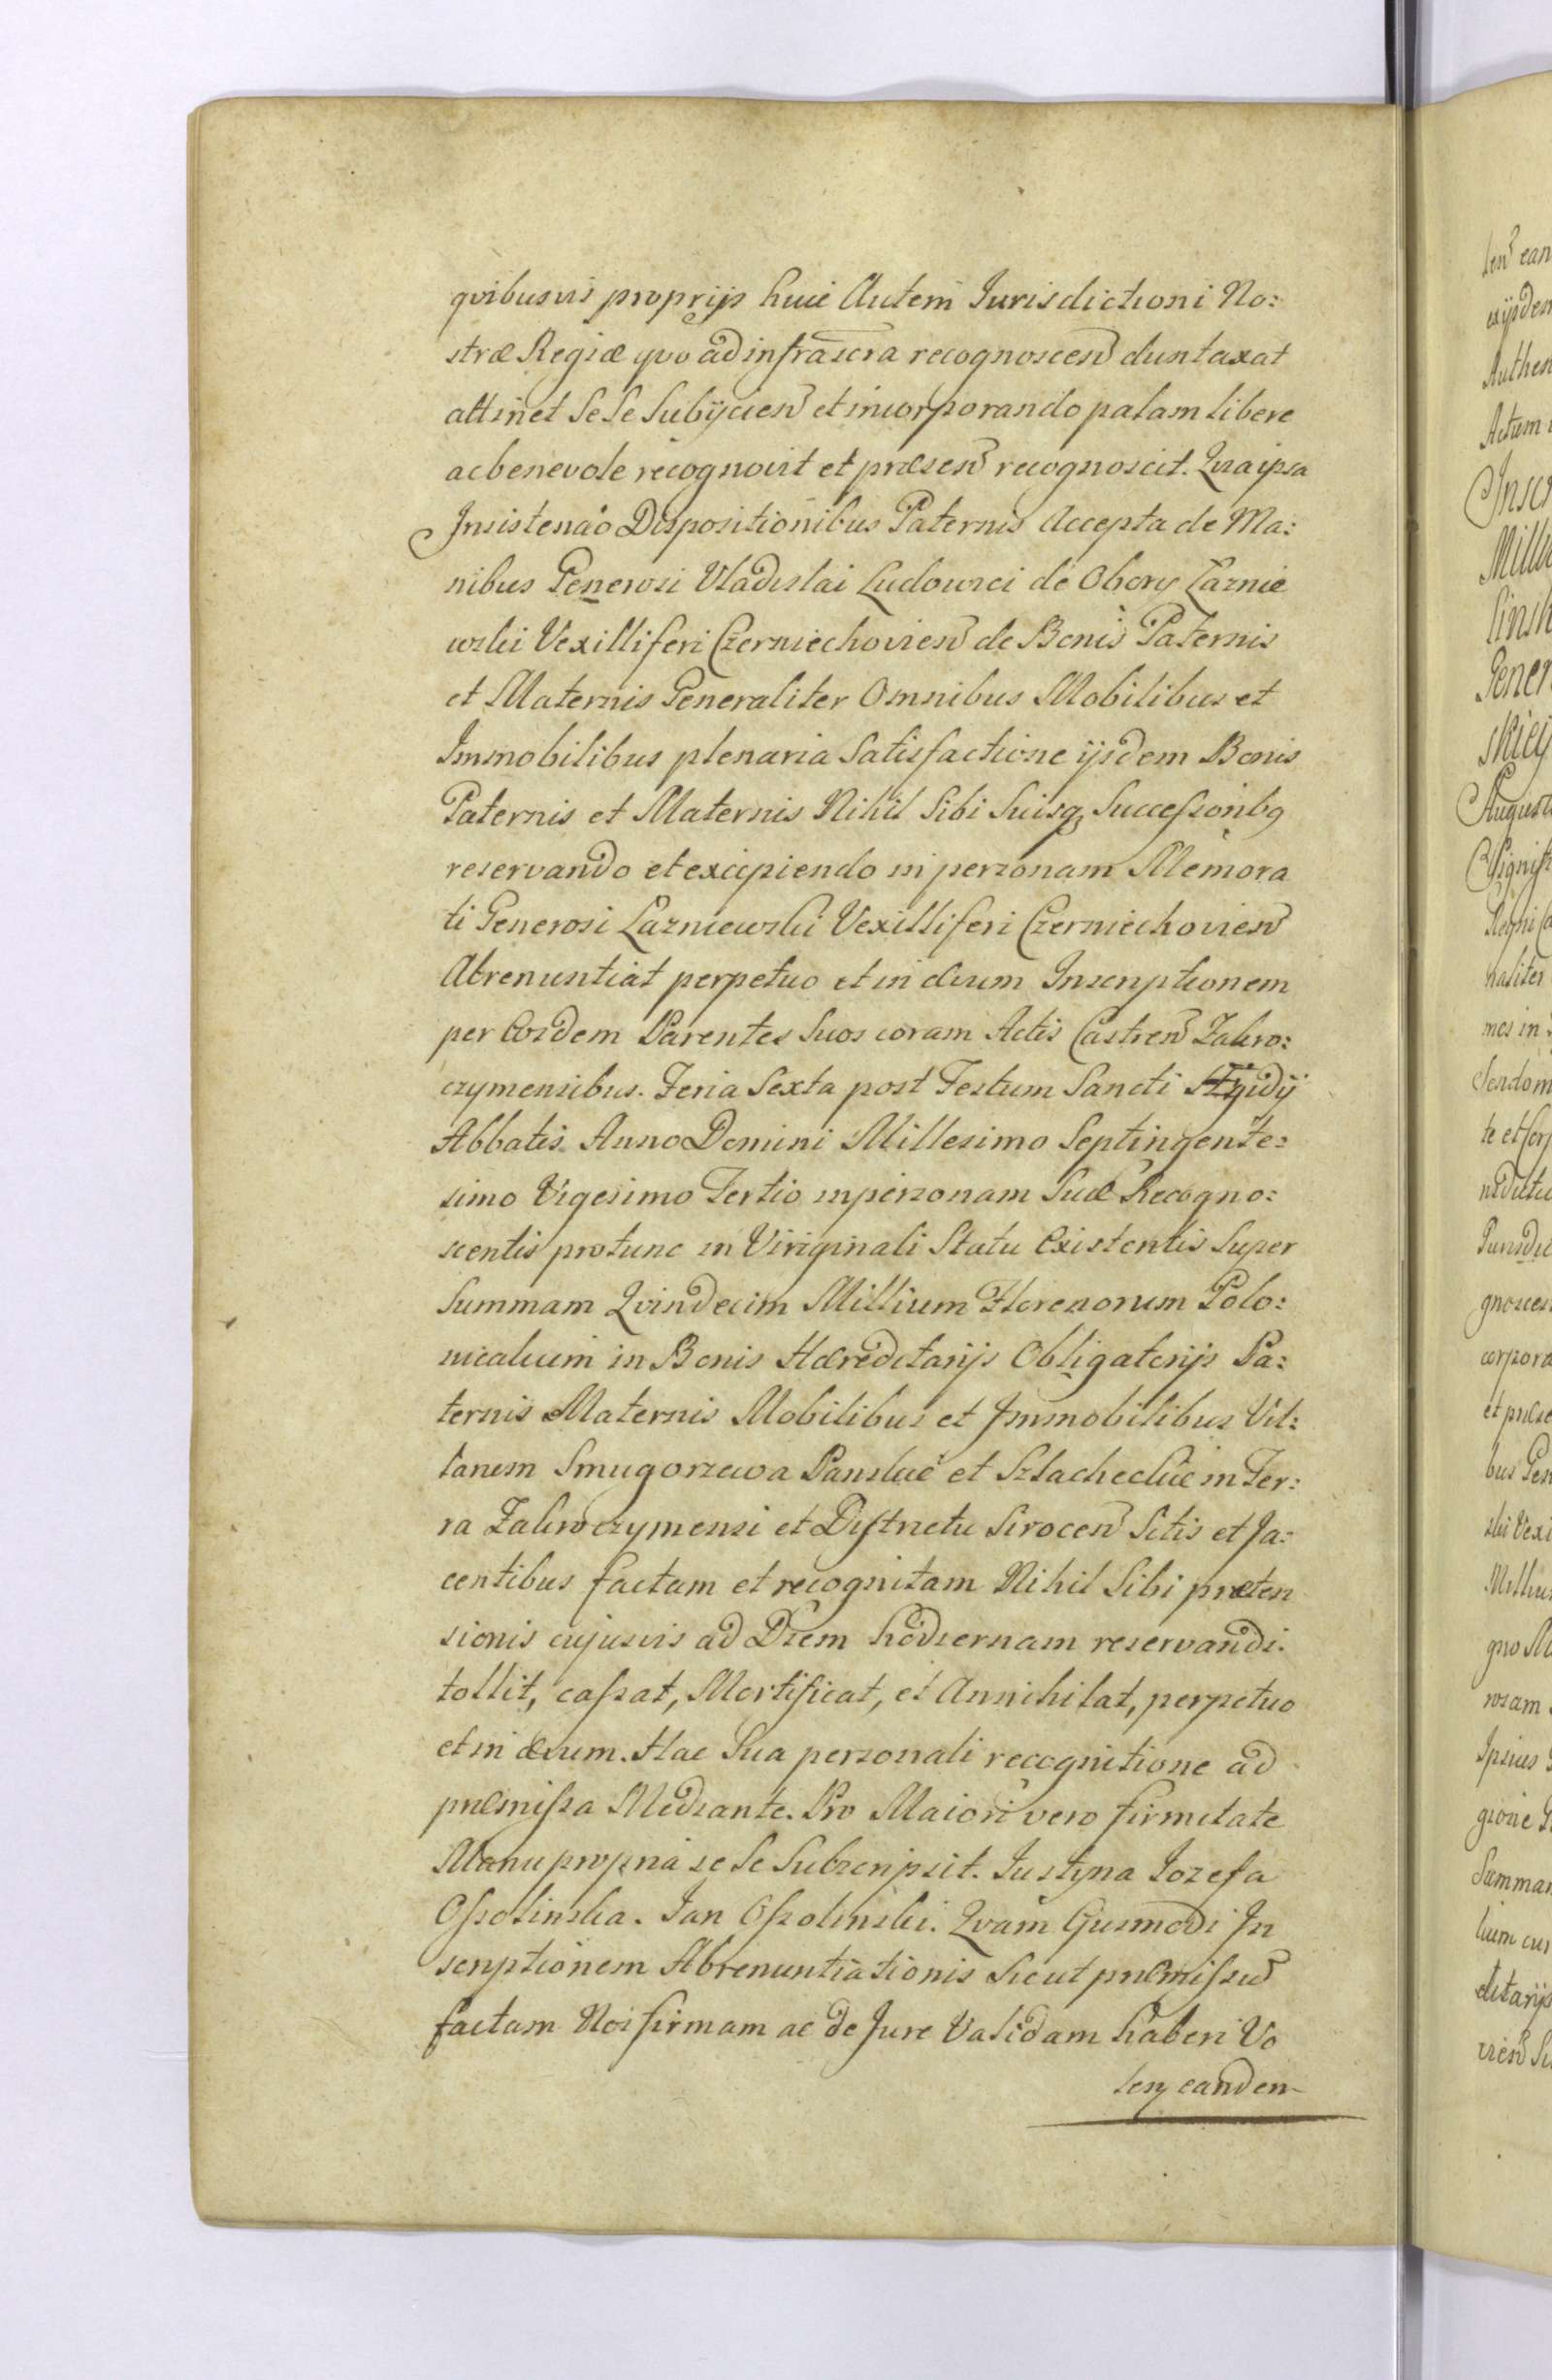 qvibusvis proprijs huic Autem Jurisdictioni No:
stræ Regiæ qvo ad infrascra recognoscen duntaxat
attinet Se Se Subijcien et incorporando palam libere
ac benevole recognovit et præsen recognoscit. Qvia ipsa
Insistendo Dispositionibus Paternis Accepta de Ma:
nibus Generosi Vladislai Ludowici de Obory Łaznie
wski Vexilliferi Czerniechovien de Bonis Paternis
et Maternis Generaliter Omnibus Mobilibus et
Immobilibus plenaria Satisfactione ijsdem Bonis
Paternis et Maternis Nihil Sibi Suisq Successoribg
reservando et excipiendo in personam Memora
ti Generosi Łazniewski Vexilliferi Czerniechovien
Abrenuntiat perpetuo et in ævum Inscriptionem
per Eosdem Parentes Suos coram Actis Castren Zakro:
czymensibus. Feria Sexta post Festum Sancti Ægidij
Abbatis. Anno Domini Millesimo Septingente:
simo Vigesimo Tertio in personam Suæ Recogno:
scentis protunc in Viriginali Statu Existentis Super
Summam Qvindecim Millium Florenorum Polo:
nicalium in Bonis Hæreditarijs Obligatorijs Pa:
ternis Maternis Mobilibus et Immobilibus Vil:
larum Smugorzewa Panskie et Szlacheckie in Ter:
ra Zakroczymensi et Districtu Serocen Sitis et Ja:
centibus factam et recognitam Nihil Sibi præten
sionis cujusvis ad Diem hodiernam reservandi.
tollit, cassat, Mortificat, et Annihilat, perpetuo
et in ævum. Hac Sua personali recognitione ad
præmissa Mediante. Pro Maiori vero firmitate
Manu propria se Se Subscripsit. Justyna Jozefa
Ossolinska. Jan Ossolinski. Qvam Ejusmodi In
scriptionem Abrenuntiationis Sicut præmissum
factam Nos firmam ac de Jure Validam haberi Vo
len eandem